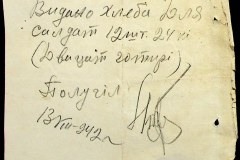 Видано хлеба для
салдат 12 шт. 24 кі
(Двацат чотирі)
Получіл
13/VIII-242 г